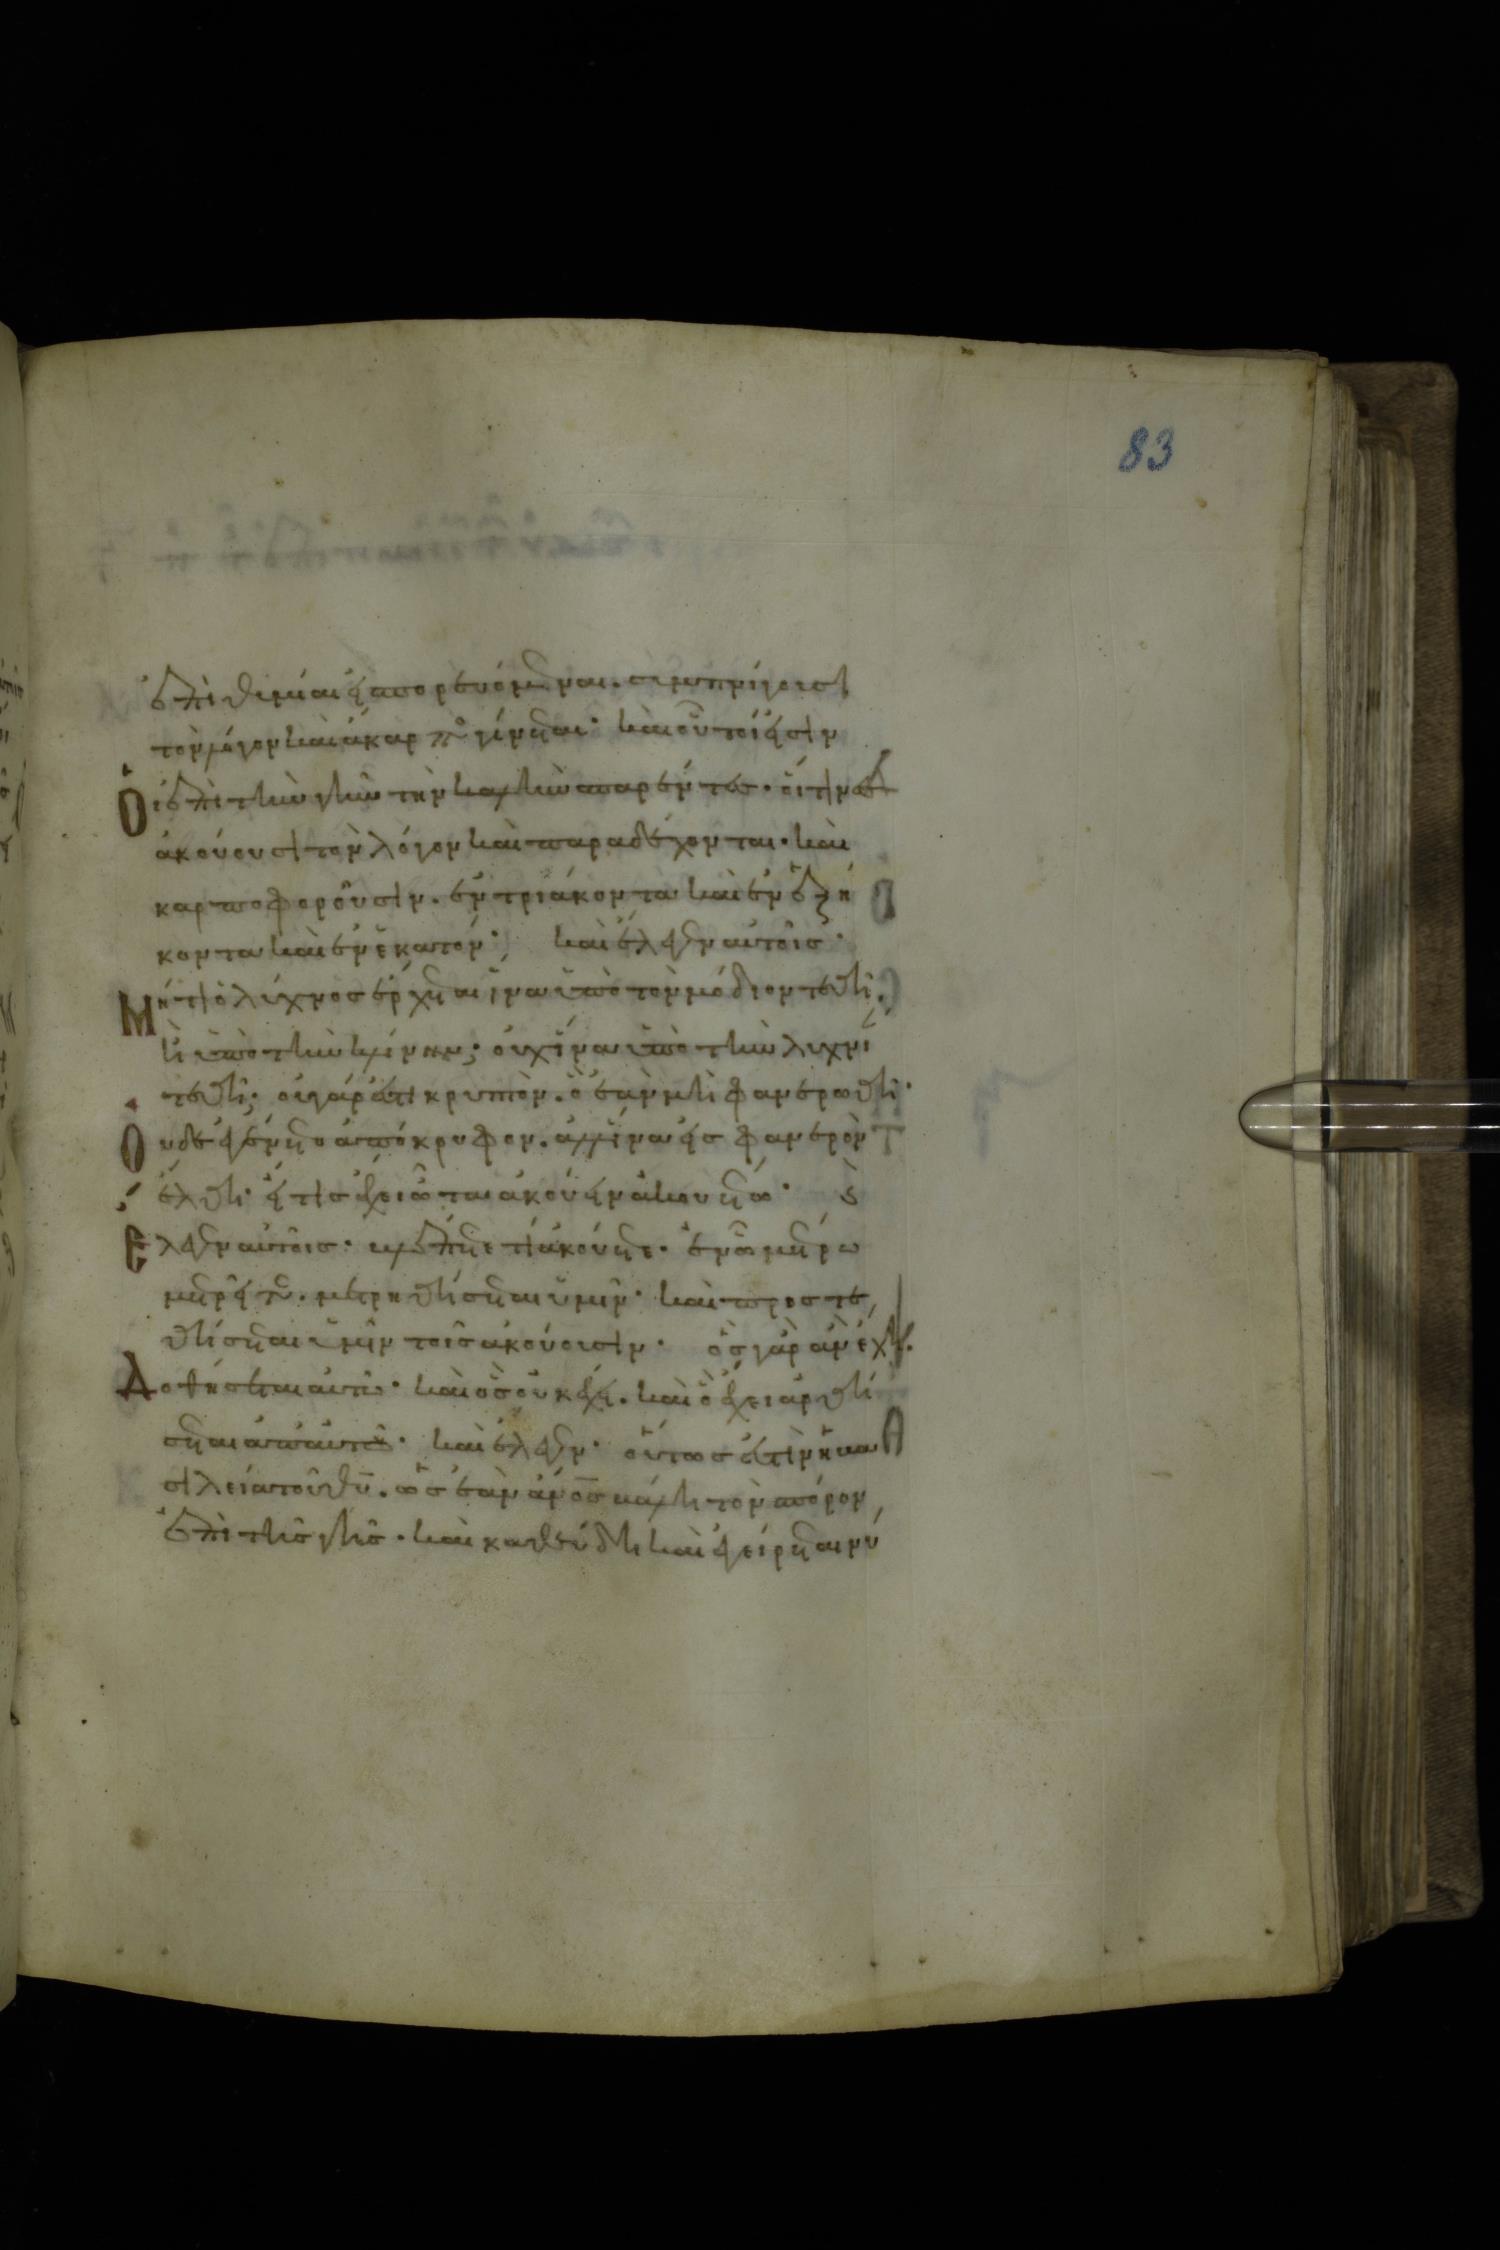 83
ἐπιθυμίαι εἰσπορευόμεναι. συμπνίγουσι
τὸν λόγον καὶ ἄκαρπος γίνεται· καὶ οὗτοί εἰσιν
Οἱ ἐπὶ τὴν γῆν τὴν καλὴν σπαρέντες. οἵτινες
ἀκούουσι τὸν λόγον καὶ παραδέχονται. καὶ
καρποφοροῦσιν. ἐν τριάκοντα καὶ ἐν ἑξή
κοντα καὶ ἐν ἑκατόν· καὶ ἔλεγεν αὐτοῖς·
Μήτι ὁ λύχνος ἔρχεται ἵνα ὑπὸ τὸν μόδιον τεθῇ.
ἢ ὑπὸ τὴν κλίνην; οὐχ ἵνα ὑπὸ τὴν λυχνί
τεθῇ; οὐ γάρ ἐστι κρυπτὸν. ὃ ἐὰν μὴ φανερωθῇ·
Οὐδὲ ἐγένετο ἀπόκρυφον. ἀλλ' ἵνα εἰς φανερὸν
ἔλθῃ· εἴ τις ἔχει ὦτα ἀκούειν ἀκουέτω· ϛ
Ἔλεγεν αὐτοῖς. βλέπετε τί ἀκούετε. ἐν ᾧ μέτρω
μετρεῖτε. μετρηθήσεται ὑμῖν· καὶ προστε
θήσεται ὑμῖν τοῖς ἀκούουσιν. ὃς γὰρ ἂν ἔχη.
Δοθήσεται αὐτῶ· καὶ ὃς οὐκ ἔχει. καὶ ὃ ἔχει ἀρθή
σεται ἀπ' αὐτοῦ· καὶ ἔλεγεν· οὕτως ἐστὶν ἡ βα
σιλεία τοῦ θυ. ὡς ἐὰν ἀνος βάλη τὸν σπόρον
ἐπὶ τῆς γῆς. καὶ καθεύδη καὶ ἐγείρεται νύ